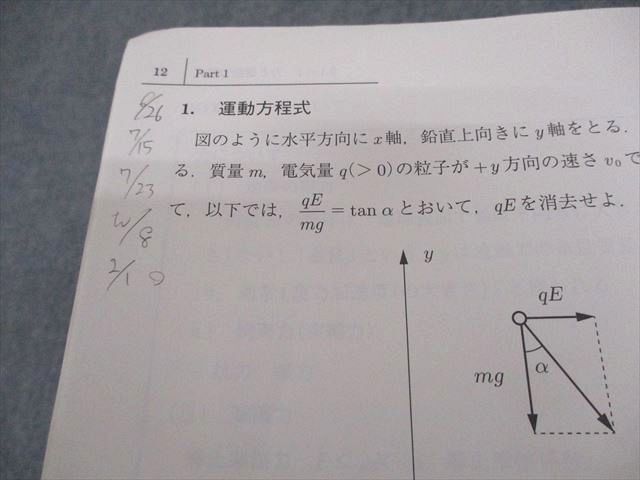 12 Part 1
6/26
7/15
7/23
2/10
1. 運動方程式
図のように水平方向に x 軸,鉛直上向きに y 軸をとる.
る.質量 m,電気量 q(>0)の粒子が +y 方向の速さ v₀ で
て,以下では,qE/mg = tan α とおいて,qE を消去せよ.
y
qE
α
mg